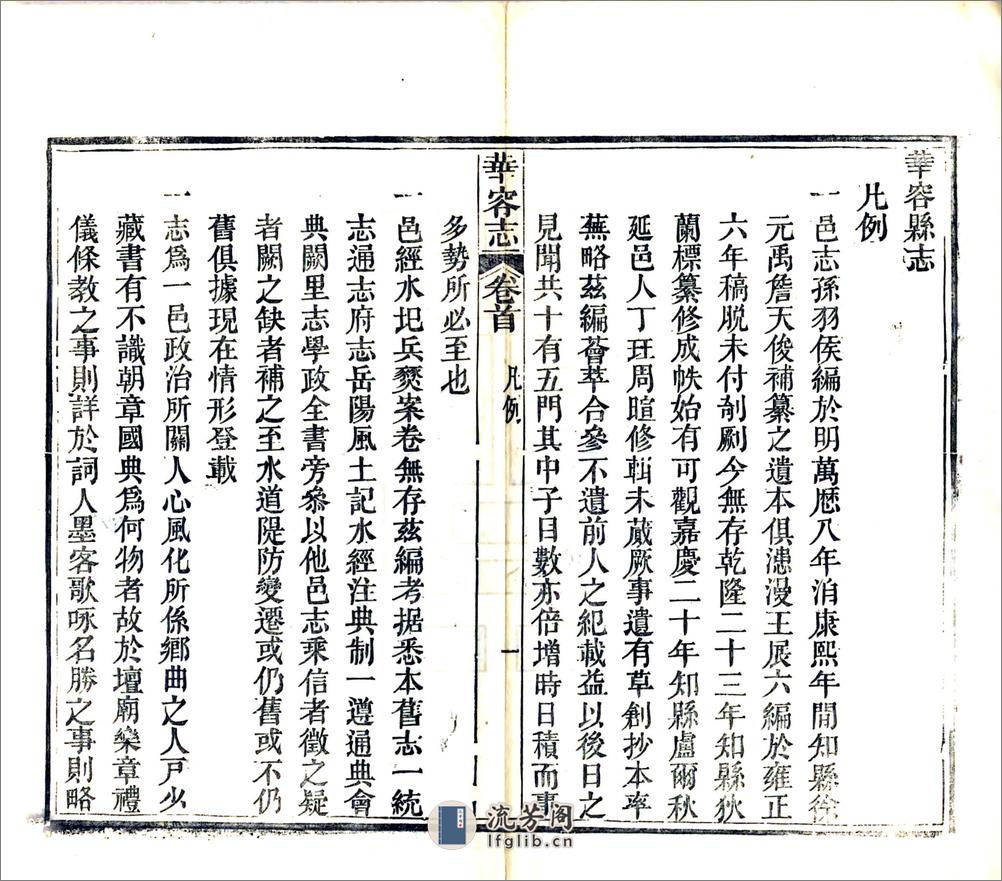 華容縣志
凡例
一邑志孫羽侯編於明萬厯八年洎康熙年間知縣徐
元禹詹天俊補纂之遺本俱漶漫王展六編於雍正
六年稿脫未付剞劂今無存乾隆二十三年知縣狄
蘭標纂修成帙始有可觀嘉慶二十年知縣盧爾秋
延邑人丁玨周暄修輯未蕆厥事遺有草創抄本率
蕪略茲編薈萃合參不遺前人之紀載益以後日之
見聞共十有五門其中子目數亦倍增時日積而事
華容志 卷首 凡例 一
多勢所必至也
一邑經水圯兵燹案卷無存茲編考据悉本舊志一統
志通志府志岳陽風土記水經注典制一遵通典會
典闕里志學政全書旁叅以他邑志乘信者徵之疑
者闕之缺者補之至水道隄防變遷或仍舊或不仍
舊俱據現在情形登載
一志爲一邑政治所關人心風化所係鄉曲之人戸少
藏書有不識朝章國典爲何物者故於壇廟樂章禮
儀條教之事則詳於詞人墨客歌咏名勝之事則略
流芳阁
lfglib.cn